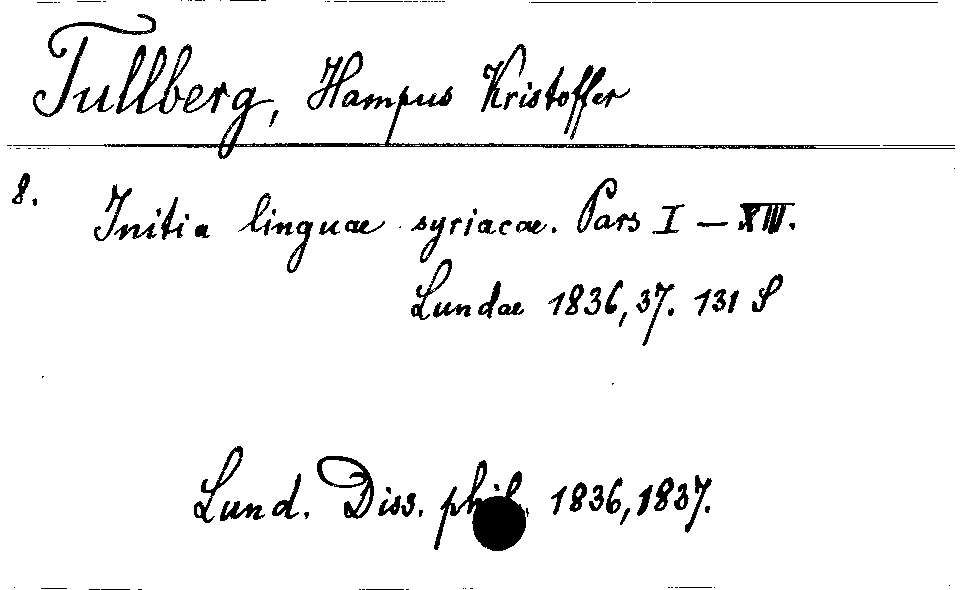 Tullberg, Hampus Kristoffer
8.
Initia linguae syriacae. Pars I — XIII.
Lundae 1836,37. 131 S
Lund. Diss. phil. 1836,1837.